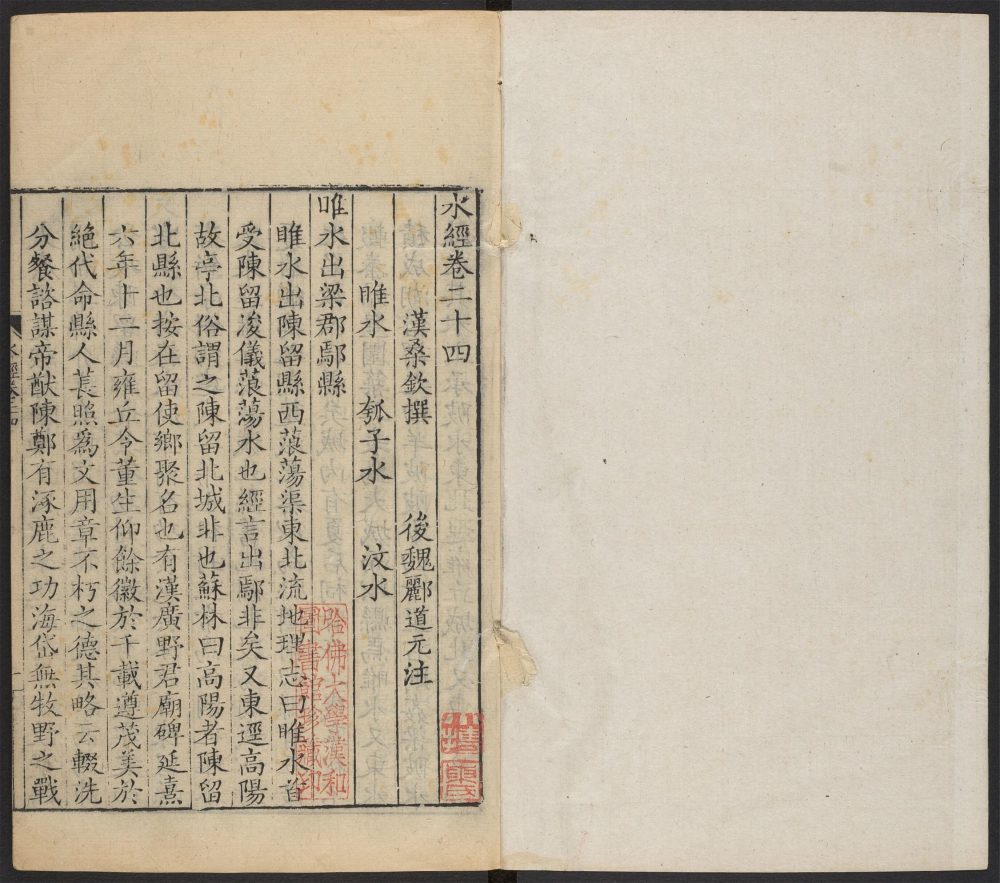 水經卷二十四
漢桑欽撰 後魏酈道元注
睢水 瓠子水 汶水
睢水出梁郡鄢縣
睢水出陳留縣西蒗蕩渠東北流地理志曰睢水首
受陳留浚儀蒗蕩水也經言出鄢非矣又東逕高陽
故亭北俗謂之陳留北城非也蘇林曰高陽者陳留
北縣也按在留使鄉聚名也有漢廣野君廟碑延熹
六年十二月雍丘令董生仰餘徽於千載遵茂美於
絕代命縣人萇照爲文用章不朽之德其略云輟洗
分餐諮謀帝猷陳鄭有涿鹿之功海岱無牧野之戰
水經卷二十四
哈佛大學漢和
圖書館珍藏印